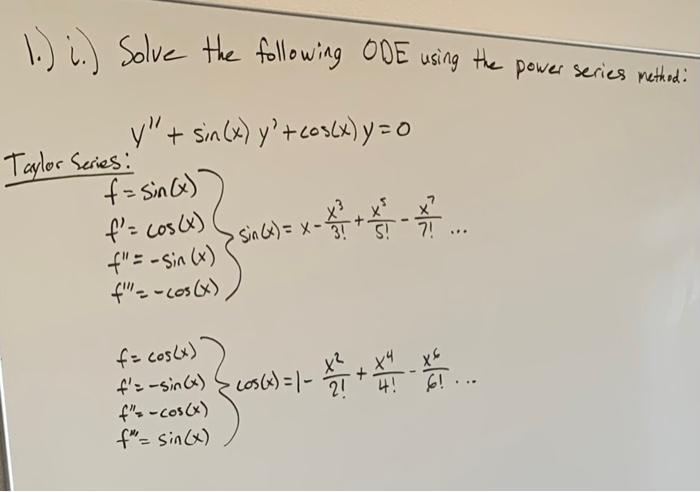 1.) i.) Solve the following ODE using the power series method:
y'' + sin(x) y' + cos(x) y = 0
Taylor Series:
f = sin(x)
f' = cos(x)
f'' = -sin(x)
f''' = -cos(x)
sin(x) = x - x³/3! + x⁵/5! - x⁷/7! ...
f = cos(x)
f' = -sin(x)
f'' = -cos(x)
f''' = sin(x)
cos(x) = 1 - x²/2! + x⁴/4! - x⁶/6! ...